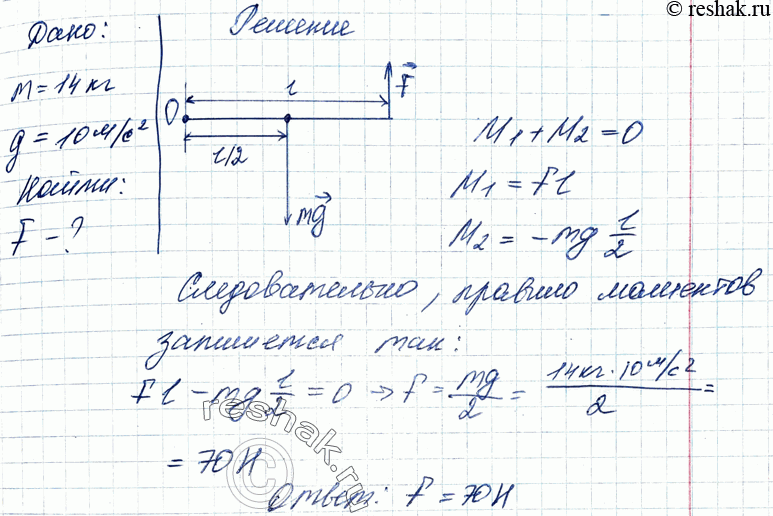 © reshak.ru
Дано:
m = 14 кг
g = 10 м/с²
Найти:
F – ?
Решение
l
F⃗
O
l/2
mg⃗
M₁ + M₂ = 0
M₁ = Fl
M₂ = -mg l/2
Следовательно, правило моментов
запишется так:
Fl - mg l/2 = 0 → F = mg/2 = 14кг · 10м/с²/2 =
= 70 Н
Ответ: F = 70 Н
reshak.ru
©